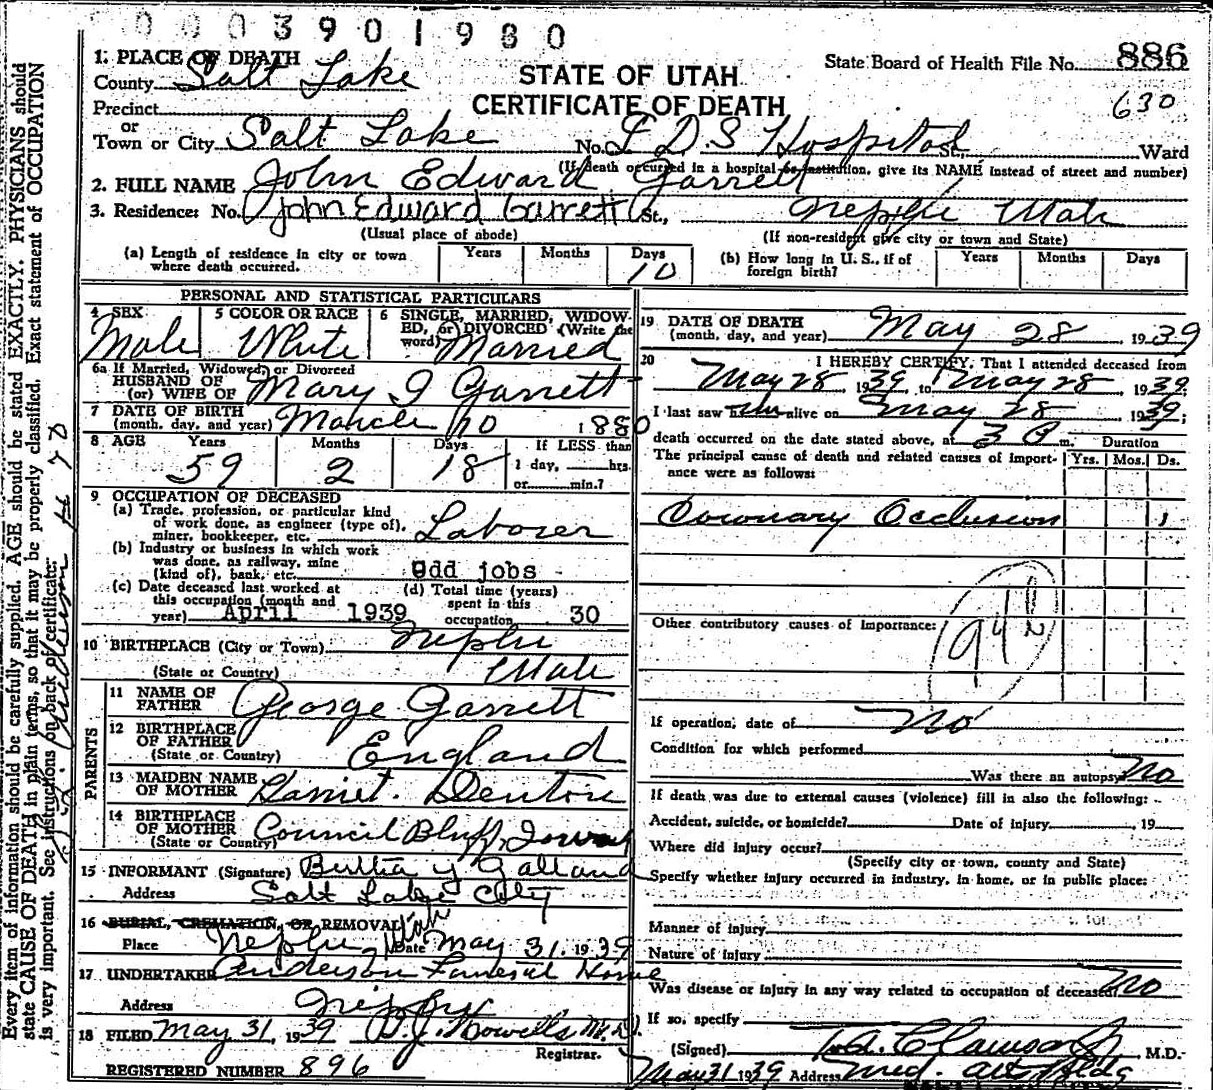 0003901980
1. PLACE OF DEATH
County Salt Lake
STATE OF UTAH
CERTIFICATE OF DEATH
State Board of Health File No. 886
630
Precinct
or
Town or City Salt Lake No. L D S Hospital St., Ward
(If death occurred in a hospital or institution, give its NAME instead of street and number)
2. FULL NAME John Edward Garrett
3. Residence: No. John Edward Garrett St., Nephi Utah
(Usual place of abode) (If non-resident give city or town and State)
(a) Length of residence in city or town where death occurred. Years Months Days 10
(b) How long in U. S., if of foreign birth? Years Months Days
PERSONAL AND STATISTICAL PARTICULARS
4 SEX Male
5 COLOR OR RACE White
6 SINGLE, MARRIED, WIDOWED, (or) DIVORCED (Write the word) Married
6a If Married, Widowed, or Divorced
HUSBAND OF
(or) WIFE OF Mary I Garrett
7 DATE OF BIRTH
(month, day, and year) March 10 1880
8 AGE Years Months Days If LESS than
59 2 18 1 day, hrs.
or min.?
9 OCCUPATION OF DECEASED
(a) Trade, profession, or particular kind
of work done, as engineer (type of),
miner, bookkeeper, etc. Laborer
(b) Industry or business in which work
was done, as railway, mine
(kind of), bank, etc. Odd jobs
(c) Date deceased last worked at
this occupation (month and
year) April 1939
(d) Total time (years)
spent in this
occupation 30
10 BIRTHPLACE (City or Town) Nephi
(State or Country) Utah
PARENTS
11 NAME OF
FATHER George Garrett
12 BIRTHPLACE
OF FATHER
(State or Country) England
13 MAIDEN NAME
OF MOTHER Harriet. Denton
14 BIRTHPLACE
OF MOTHER
(State or Country) Council Bluff, Iowa
15 INFORMANT (Signature)
Address Salt Lake City
16 BURIAL, CREMATION, OR REMOVAL
Place Nephi Utah Date May 31. 1939
17 UNDERTAKER Anderson Funeral Home
Address Nephi
18 FILED May 31, 1939 Howells M. D.
Registrar.
REGISTERED NUMBER 896
19 DATE OF DEATH
(month, day, and year) May 28 1939
20 I HEREBY CERTIFY, That I attended deceased from
May 28 1939 to May 28 1939
I last saw h alive on May 28 1939;
death occurred on the date stated above, at 3 P m. Duration
The principal cause of death and related causes of importance were as follows: Yrs. Mos. Ds.
Coronary Occlusion 1
Other contributory causes of importance:
94b
If operation, date of no
Condition for which performed
Was there an autopsy no
If death was due to external causes (violence) fill in also the following:
Accident, suicide, or homicide? Date of injury , 19
Where did injury occur?
(Specify city or town, county and State)
Specify whether injury occurred in industry, in home, or in public place:
Manner of injury
Nature of injury
Was disease or injury in any way related to occupation of deceased? no
If so, specify
(Signed) Clawson Jr, M.D.
May 31 1939 Address Med. Arts Bldg
Every item of information should be carefully supplied. AGE should be stated EXACTLY. PHYSICIANS should
state CAUSE OF DEATH in plain terms, so that it may be properly classified. Exact statement of OCCUPATION
is very important. See instructions on back of certificate.